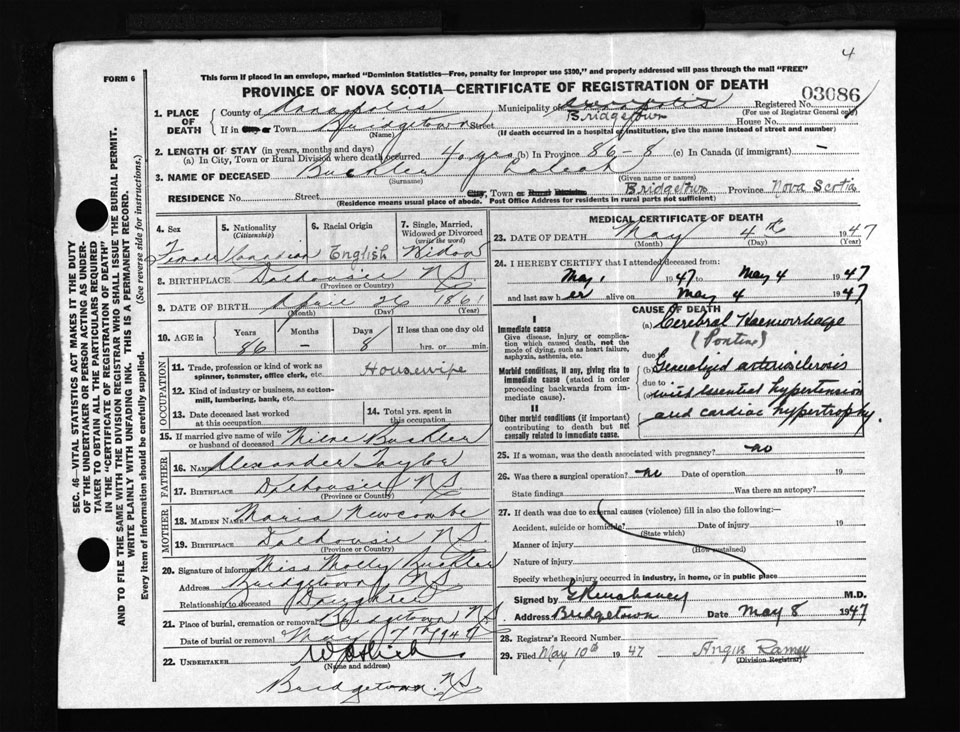 4
FORM 6
This form if placed in an envelope, marked "Dominion Statistics—Free, penalty for improper use $300," and properly addressed will pass through the mail "FREE"
PROVINCE OF NOVA SCOTIA—CERTIFICATE OF REGISTRATION OF DEATH
03086
1. PLACE OF DEATH
County of Annapolis Municipality of Annapolis Registered No.
(For use of Registrar General only)
If in City or Town Bridgetown Street Bridgetown House No.
(Name) (If death occurred in a hospital or institution, give the name instead of street and number)
2. LENGTH OF STAY (in years, months and days)
(a) In City, Town or Rural Division where death occurred 40 yrs (b) In Province 86-8 (c) In Canada (if immigrant) —
3. NAME OF DECEASED Buckler
(Surname) (Given name or names)
RESIDENCE No. Street City, Town or Rural Bridgetown Province Nova Scotia
(Residence means usual place of abode. Post Office Address for residents in rural parts not sufficient)
4. Sex Female
5. Nationality (Citizenship) Canadian
6. Racial Origin English
7. Single, Married, Widowed or Divorced (write the word) Widow
8. BIRTHPLACE Dalhousie NS
(Province or Country)
9. DATE OF BIRTH April 26 1861
(Month) (Day) (Year)
10. AGE in Years Months Days If less than one day old
86 — 8 hrs. or min.
OCCUPATION
11. Trade, profession or kind of work as spinner, teamster, office clerk, etc. Housewife
12. Kind of industry or business, as cotton-mill, lumbering, bank, etc.
13. Date deceased last worked at this occupation
14. Total yrs. spent in this occupation
15. If married give name of wife or husband of deceased Buckler
FATHER
16. NAME Alexander Taylor
17. BIRTHPLACE Dalhousie NS
(Province or Country)
MOTHER
18. MAIDEN NAME Maria Newcombe
19. BIRTHPLACE Dalhousie NS.
(Province or Country)
20. Signature of informant Miss Molly Buckler
Address Bridgetown NS
Relationship to deceased Daughter
21. Place of burial, cremation or removal Bridgetown NS
Date of burial or removal May 7th 1947
22. UNDERTAKER
(Name and address)
Bridgetown. NS.
MEDICAL CERTIFICATE OF DEATH
23. DATE OF DEATH May 4th 1947
(Month) (Day) (Year)
24. I HEREBY CERTIFY that I attended deceased from
May 1 1947 to May 4 1947
and last saw her alive on May 4 1947
CAUSE OF DEATH
I
Immediate cause
Give disease, injury or complication which caused death, not the mode of dying, such as heart failure, asphyxia, asthenia, etc.
(a) Cerebral Haemorrhage
(Pontine)
due to
Morbid conditions, if any, giving rise to immediate cause (stated in order proceeding backwards from immediate cause).
(b) Generalized arteriosclerosis
due to
with Essential Hypertension
II
Other morbid conditions (if important) contributing to death but not causally related to immediate cause.
and cardiac hypertrophy.
25. If a woman, was the death associated with pregnancy? no
26. Was there a surgical operation? no Date of operation 19
State findings Was there an autopsy?
27. If death was due to external causes (violence) fill in also the following:—
Accident, suicide or homicide? Date of injury 19
(State which)
Manner of injury
(How sustained)
Nature of injury
Specify whether injury occurred in industry, in home, or in public place
Signed by M.D.
Address Bridgetown Date May 8 1947
28. Registrar's Record Number
29. Filed May 10th 1947 Angus Ramey
(Division Registrar)
SEC. 46—VITAL STATISTICS ACT MAKES IT THE DUTY
OF THE UNDERTAKER OR PERSON ACTING AS UNDERTAKER
TO OBTAIN ALL THE PARTICULARS REQUIRED
IN THE "CERTIFICATE OF REGISTRATION OF DEATH"
AND TO FILE THE SAME WITH THE DIVISION REGISTRAR WHO SHALL ISSUE THE BURIAL PERMIT.
WRITE PLAINLY WITH UNFADING INK. THIS IS A PERMANENT RECORD.
Every item of information should be carefully supplied.
(See reverse side for instructions.)